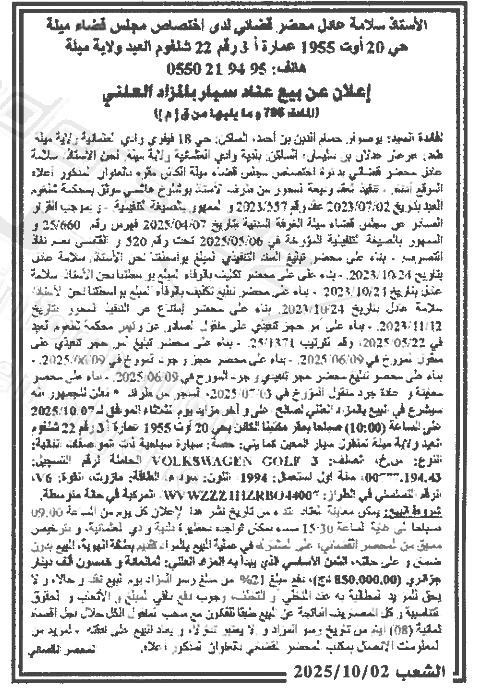 الأستاذ سلامة عادل محضر قضائي لدى اختصاص مجلس قضاء ميلة
حي 20 أوت 1955 عمارة أ 3 رقم 22 شلغوم العيد ولاية ميلة
هاتف: 95 94 21 0550
إعلان عن بيع عتاد سيار بالمزاد العلني
(المادة 706 وما يليها من ق إ م إ)
لفائدة السيد: بوصوار حسام الدين بن أحمد، الساكن: حي 18 فيفري وادي العثمانية ولاية ميلة
ضد: عدلان بن سليمان، الساكن: بلدية وادي العثمانية ولاية ميلة، نحن الأستاذ سلامة
عادل محضر قضائي بدائرة اختصاص مجلس قضاء ميلة الكائن مقره بالعنوان المذكور أعلاه
الموقع أدناه، تنفيذا لعقد وديعة محرر من طرف الأستاذ هاشمي موثق بمحكمة شلغوم
العيد بتاريخ 2023/07/02 عقد رقم 2023/557 و الممهور بالصيغة التنفيذية، و بموجب القرار
الصادر عن مجلس قضاء ميلة الغرفة المدنية بتاريخ 2025/04/07 فهرس رقم 25/660 و
الممهور بالصيغة التنفيذية المؤرخة في 2025/05/06 تحت رقم 520 و القاضي بعد نفاذ
- بناء على محضر تبليغ السند التنفيذي للمبلغ بواسطتنا نحن الأستاذ سلامة عادل
بتاريخ 2023/10/24. - بناء على محضر تكليف بالوفاء المبلغ بواسطتنا نحن الأستاذ سلامة
عادل بتاريخ 2023/10/24. - بناء على محضر تبليغ تكليف بالوفاء المبلغ بواسطتنا نحن الأستاذ
سلامة عادل بتاريخ 2023/10/24. - بناء على محضر امتناع عن التنفيذ المحرر بتاريخ
2023/11/12 - بناء على أمر حجز تنفيذي على منقول الصادر عن رئيس محكمة شلغوم العيد
في 2025/05/22، رقم الترتيب 25/1371 - بناء على محضر تبليغ أمر حجز تنفيذي على
منقول المؤرخ في 2025/06/09. - بناء على محضر حجز و جرد المؤرخ في 2025/06/09. -
بناء على محضر تبليغ محضر حجز تنفيذي و جرد المؤرخ في 2025/06/09 - بناء على محضر
معاينة و إعادة جرد منقول المؤرخ في 2025/07/03، المحرر من طرفنا. * نعلن للجمهور أنه
سيشرع في البيع بالمزاد العلني لصالح على و آخر مزايد يوم الثلاثاء الموافق لـ 2025/10/07
على الساعة (10:00) صباحا بمقر مكتبنا الكائن بحي 20 أوت 1955 عمارة أ 3 رقم 22 شلغوم
العيد ولاية ميلة لمنقول سيار المعين كما يلي: حصة: سيارة سياحية ذات المواصفات التالية:
النوع: س.خ، الصنف: VOLKSWAGEN GOLF 3 الحاملة لرقم التسجيل:
00777.194.43، سنة أول استعمال: 1994 اللون: سوداء، الطاقة: مازوت، القوة: V6،
الرقم التسلسلي في الطراز: WVWZZZ1HZRBO44007، المركبة في حالة متوسطة.
شروط البيع: يمكن معاينة العتاد ابتداء من تاريخ نشر هذا الإعلان كل يوم من الساعة 09.00
صباحا إلى غاية الساعة 15:30 مساء بمكان تواجده بحظيرة بلدية وادي العثمانية، و بترخيص
مسبق من المحضر القضائي، على المشترك في عملية البيع بالمزاد تقديم بطاقة الهوية، البيع بدون
ضمان و على حالته، الثمن الأساسي الذي يبدأ به المزاد العلني: ثمانمائة و خمسون ألف دينار
جزائري (850.000,00 دج)، دفع مبلغ 21% من مبلغ رسو المزاد يوم البيع نقدا و حالا، و لا
يحق للمزيد المطالبة به عند التخلي و التعطف، وجوب دفع باقي المبلغ و الأتعاب و الحقوق
التناسبية و كل المصاريف الناتجة عن البيع طبقا للقانون مع سحب المنقول الكل خلال أجل أقصاه
ثمانية (08) أيام من تاريخ رسو المزاد، و إلا يعتبر متنازلا، و يعاد البيع على نفقته. - لمزيد من
المعلومات الاتصال بمكتب المحضر القضائي بالعنوان المذكور أعلاه.
المحضر القضائي
الشعب 2025/10/02